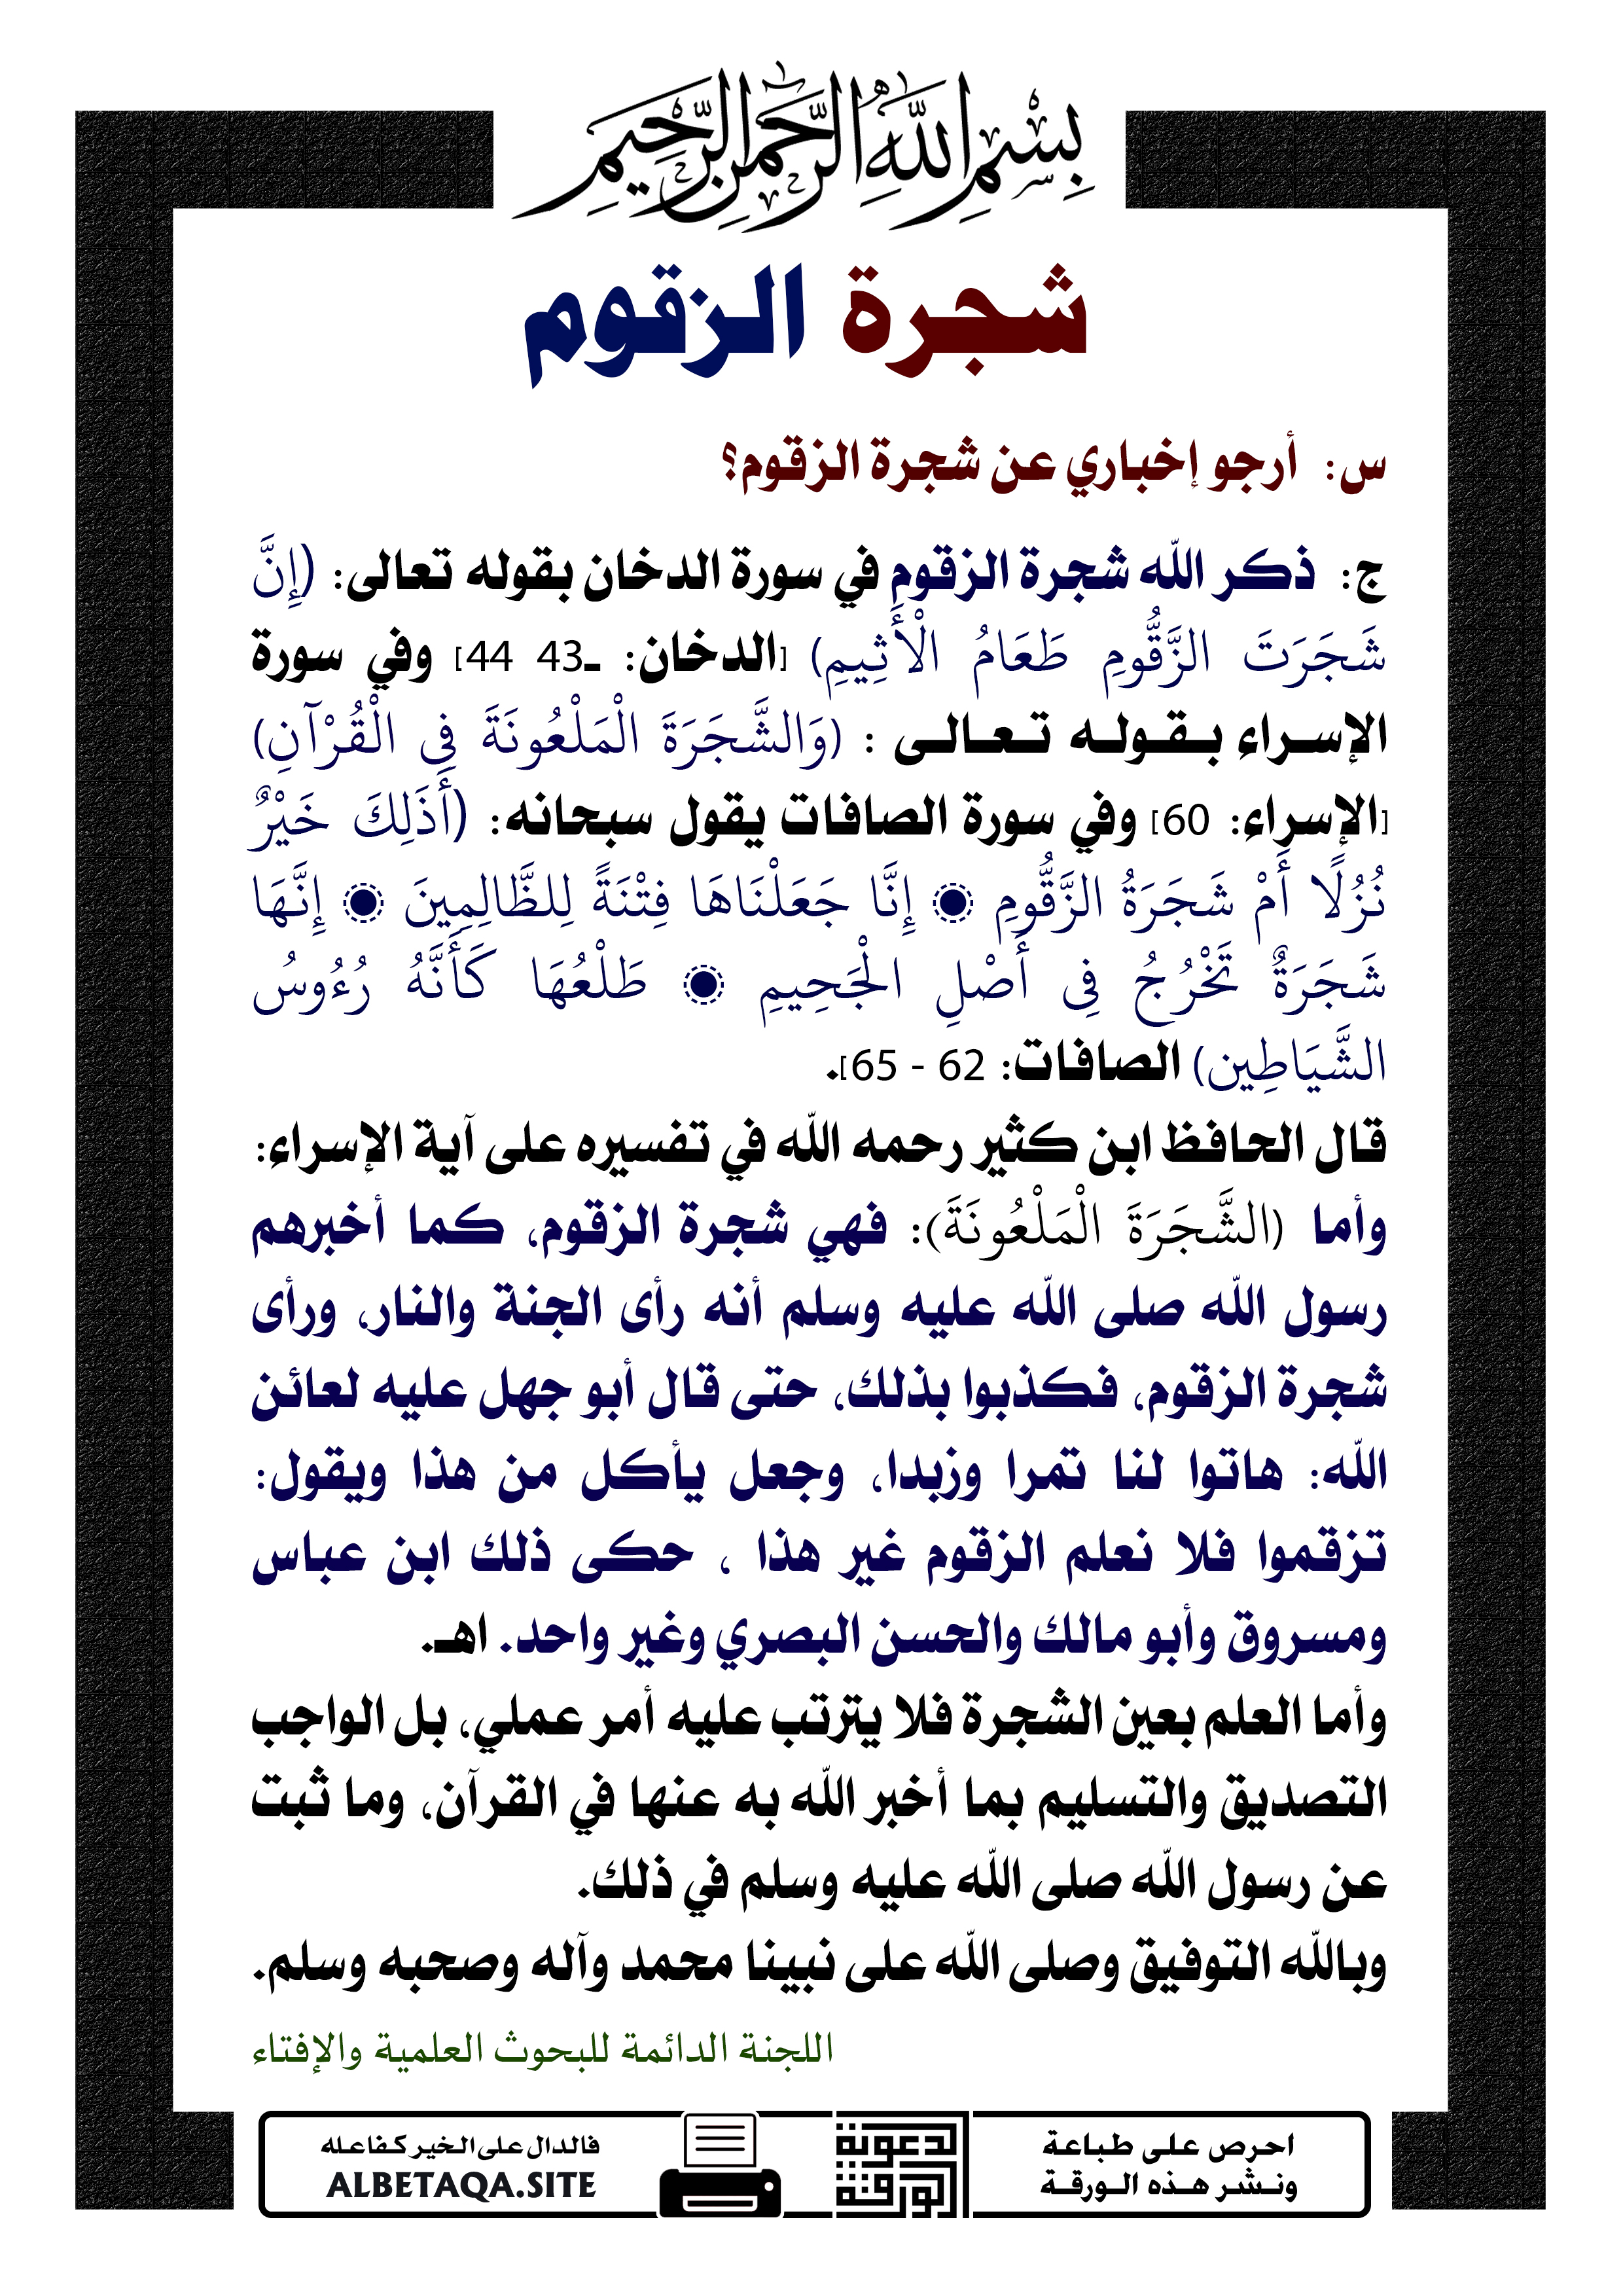 بِسْمِ اللَّهِ الرَّحْمَٰنِ الرَّحِيمِ
شجرة الزقوم
س: أرجو إخباري عن شجرة الزقوم؟
ج: ذكر الله شجرة الزقوم في سورة الدخان بقوله تعالى: (إِنَّ
شَجَرَتَ الزَّقُّومِ طَعَامُ الْأَثِيمِ) [الدخان: ـ43 44] وفي سورة
الإسراء بقوله تعالى : (وَالشَّجَرَةَ الْمَلْعُونَةَ فِي الْقُرْآنِ)
[الإسراء: 60] وفي سورة الصافات يقول سبحانه: (أَذَلِكَ خَيْرٌ
نُزُلًا أَمْ شَجَرَةُ الزَّقُّومِ ۞ إِنَّا جَعَلْنَاهَا فِتْنَةً لِلظَّالِمِينَ ۞ إِنَّهَا
شَجَرَةٌ تَخْرُجُ فِي أَصْلِ الْجَحِيمِ ۞ طَلْعُهَا كَأَنَّهُ رُءُوسُ
الشَّيَاطِين) الصافات: 62 - 65].
قال الحافظ ابن كثير رحمه الله في تفسيره على آية الإسراء:
وأما (الشَّجَرَةَ الْمَلْعُونَةَ): فهي شجرة الزقوم، كما أخبرهم
رسول الله صلى الله عليه وسلم أنه رأى الجنة والنار، ورأى
شجرة الزقوم، فكذبوا بذلك، حتى قال أبو جهل عليه لعائن
الله: هاتوا لنا تمرا وزبدا، وجعل يأكل من هذا ويقول:
تزقموا فلا نعلم الزقوم غير هذا ، حكى ذلك ابن عباس
ومسروق وأبو مالك والحسن البصري وغير واحد. اهـ.
وأما العلم بعين الشجرة فلا يترتب عليه أمر عملي، بل الواجب
التصديق والتسليم بما أخبر الله به عنها في القرآن، وما ثبت
عن رسول الله صلى الله عليه وسلم في ذلك.
وبالله التوفيق وصلى الله على نبينا محمد وآله وصحبه وسلم.
اللجنة الدائمة للبحوث العلمية والإفتاء
احرص على طباعة
ونشر هذه الورقة
الورقة
الدعوية
فالدال على الخير كفاعله
ALBETAQA.SITE